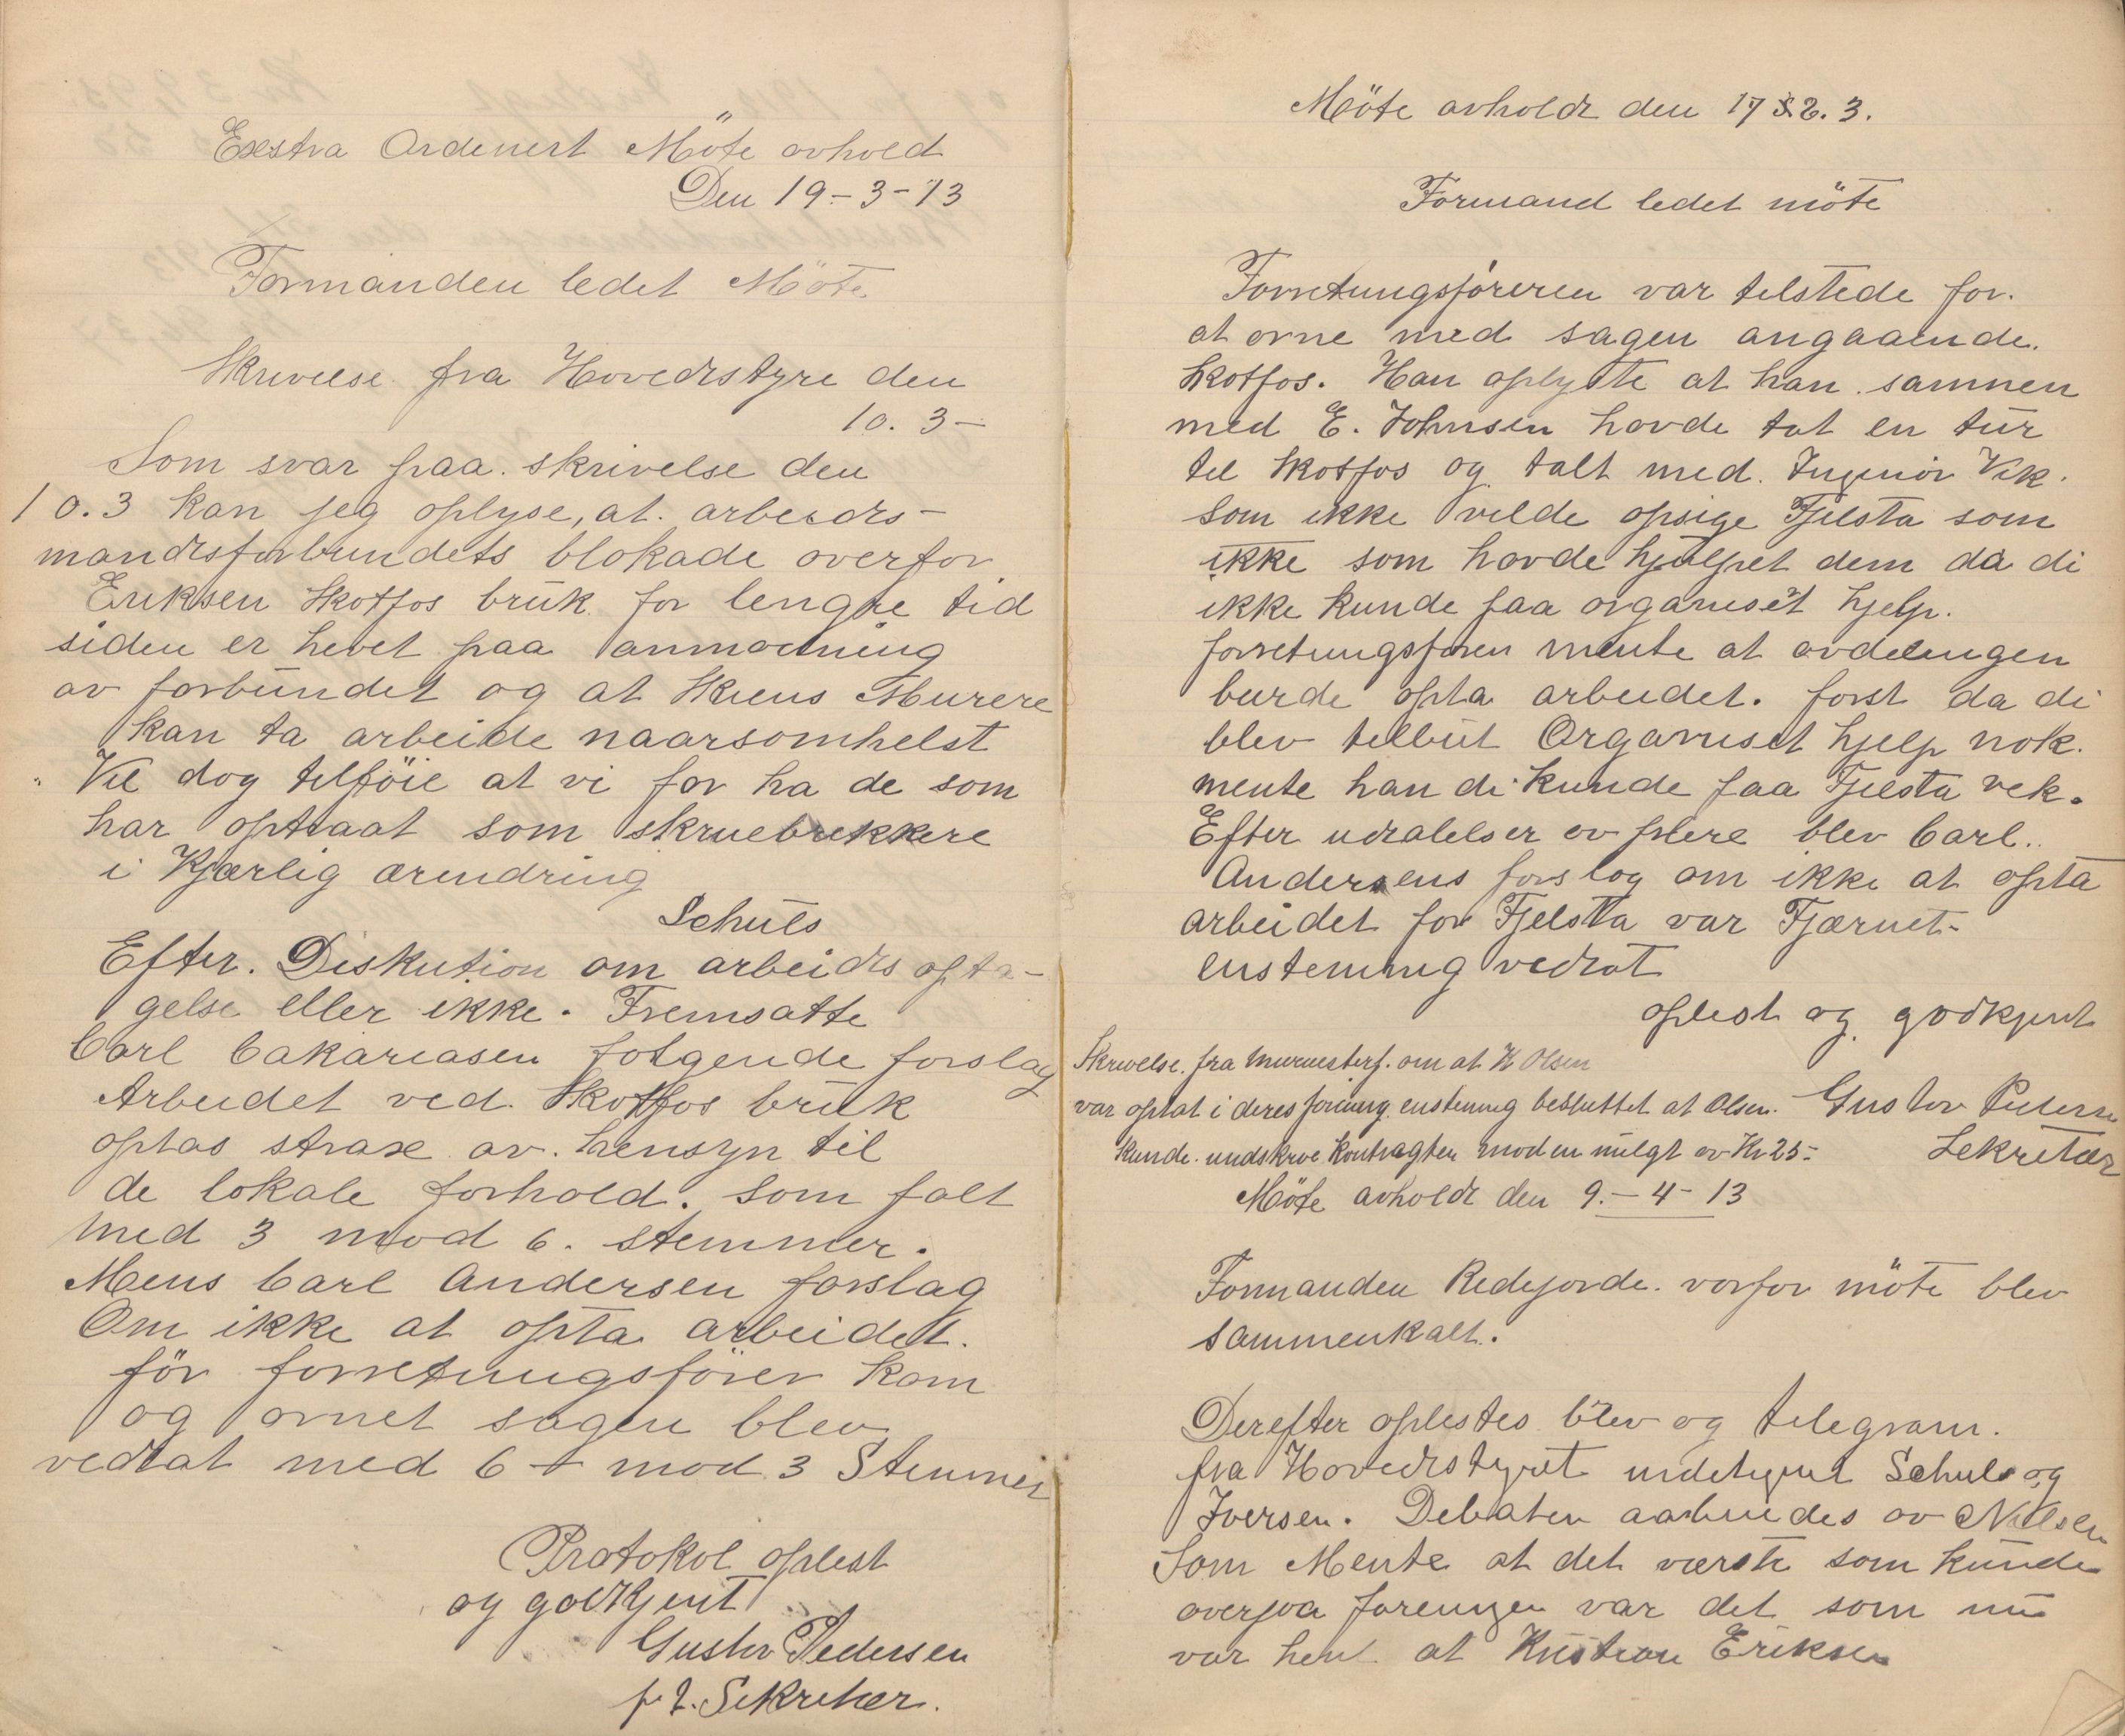 Exstra Ordenert Möte avhold
Den 19-3-13
Formanden ledet Möte
Skrivelse fra Hovedstyre den
10. 3-
Som svar paa. skrivelse den
10.3 kan jeg oplyse, at. arbeids-
mandsforbundets blokade overfor
Eriksen Skotfos brŭk for lengre tid
siden er hevet paa anmodning
av forbŭndet og at Skiens Murere
kan ta arbeide naarsomhelst
Vil dog tilföie at vi for ha de som
har optraat som skruebrekkere
i Kjærlig ærindring
Schŭls
Efter. Diskution om arbeids opta-
gelse eller ikke. Fremsatte
Carl Cakariasen følgende forslag
Arbeidet ved. Skotfos brŭk
optas strax av. hensyn til
de lokale forhold. som falt
med 3 mod 6. stemmer.
Mens Carl Andersen forslag
Om ikke at opta arbeidet.
för forretningsförer kom
og ornet sagen blev
vedtat med 6 mod 3 Stemmer
Protokol oplest
og godkjent
Gustav Pedersen
p.t. Sekretær.
Möte avholdt den 17 3. 3.
Formand ledet möte
Forretningsføreren var tilstede for.
at orne med sagen angaaende.
Skotfos. Han oplyste at han sammen
med E. Johnsen havde tat en tŭr
til Skotfos og talt med. Ingeniør Vik.
som ikke vilde opsige Fjelsta som
ikke som havde hjulpet dem da di
ikke kunde faa organiset hjelp.
forretningsføren mente at avdelingen
burde opta arbeidet. først da di
blev tilbŭt Organiset hjelp nok.
mente han di kunde faa Fjelsta vek.
Efter udtalelser av flere blev Carl..
Andersens forslog om ikke at opta
arbeidet før Fjelsta var Fjærnet-
enstemmig vedtat
oplest og godkjent
Skrivelse. fra Murmesterf. om at H Olsen
var optat i deres forening. enstemig besluttet at Olsen.
Gustav Pedersen
kunde. undskrive kontragten mod en mŭlgt av Kr 25-
Sekretær
Möte avholdt den 9.-4-13
Formanden Redejorde. vorfor möte blev
sammenkalt.
Derefter oplestes brev og telegram.
fra Hovedstyret undetegnet Schuls og
Iversen. Debaten aabnedes av Nilsen
Som Mente at det værste som kŭnde
overgaa foreningen var det som nŭ
var hent at Kristian Eriksen